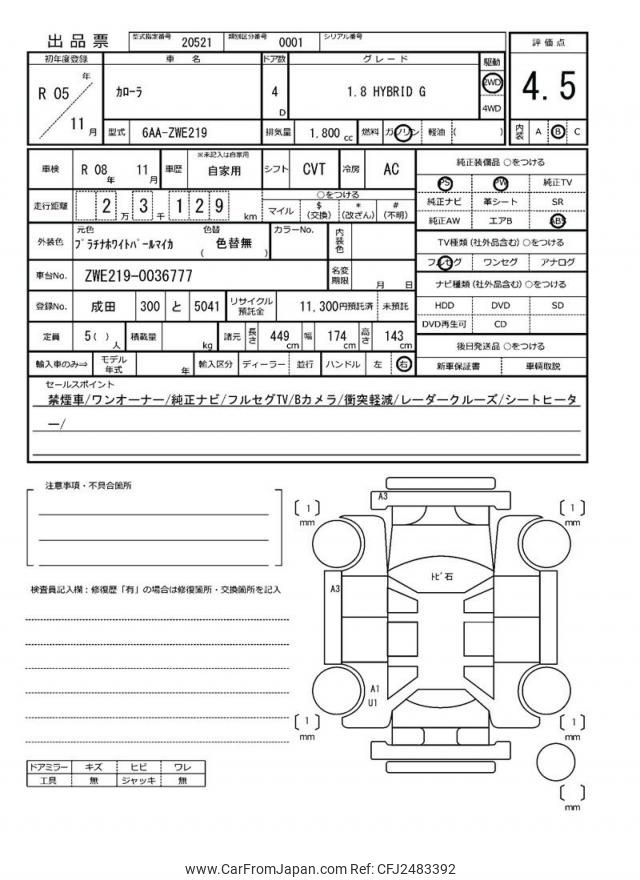 出品票 型式指定番号 20521 類別区分番号 0001 シリアル番号
初年度登録 車 名 ドア数 グレード 駆動 評価点
R 05 年 11 月 カローラ 4 D 1.8 HYBRID G 2WD 4WD 4.5
型式 6AA-ZWE219 排気量 1.800 cc 燃料 ガソリン 軽油 ( ) 内装 A B C
車検 R 08 年 11 月 車歴 ※未記入は自家用 自家用 シフト CVT 冷房 AC
走行距離 2 万 3 千 1 2 9 km
○をつける
マイル $ (交換) * (改ざん) # (不明)
外装色 元色 プラチナホワイトパールマイカ 色替 ( 色替無 ) カラーNo. 内装色
車台No. ZWE219-0036777 名変期限 月 日
登録No. 成田 300 と 5041 リサイクル預託金 11,300円預託済 未預託
定員 5( ) 人 積載量 kg 諸元 長さ 449 cm 幅 174 cm 高さ 143 cm
輸入車のみ⇒ モデル年式 年 輸入区分 ディーラー 並行 ハンドル 左 右
純正装備品 ○をつける
PS PW 純正TV
純正ナビ 革シート SR
純正AW エアB ABS
TV種類 (社外品含む) ○をつける
フルセグ ワンセグ アナログ
ナビ種類 (社外品含む) ○をつける
HDD DVD SD
DVD再生可 CD
後日発送品 ○をつける
新車保証書 車輌取説
セールスポイント
禁煙車/ワンオーナー/純正ナビ/フルセグTV/Bカメラ/衝突軽減/レーダークルーズ/シートヒータ
ー/
注意事項・不具合箇所
検査員記入欄：修復歴「有」の場合は修復箇所・交換箇所を記入
A3
[ 1 ] mm
[ 1 ] mm
トビ石
A3
A1
U1
[ 1 ] mm
[ 1 ] mm
[ ] mm
ドアミラー キズ ヒビ ワレ
工具 無 ジャッキ 無
www.CarFromJapan.com Ref: CFJ2483392